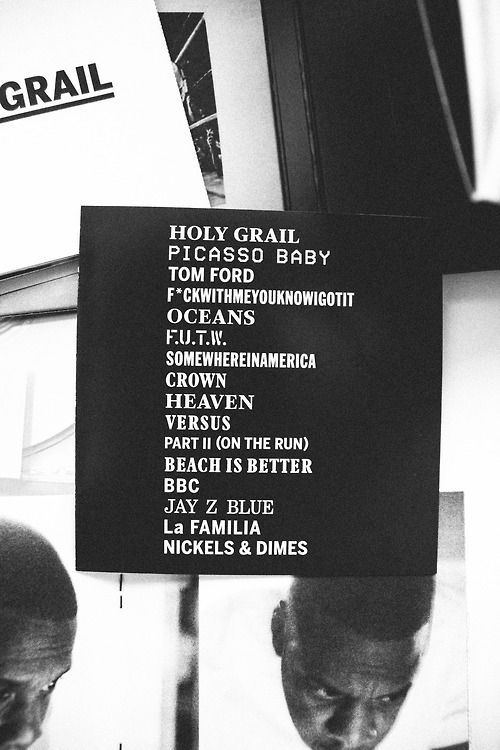 GRAIL
HOLY GRAIL
PICASSO BABY
TOM FORD
F*CKWITHMEYOUKNOWIGOTIT
OCEANS
F.U.T.W.
SOMEWHEREINAMERICA
CROWN
HEAVEN
VERSUS
PART II (ON THE RUN)
BEACH IS BETTER
BBC
JAY Z BLUE
La FAMILIA
NICKELS & DIMES